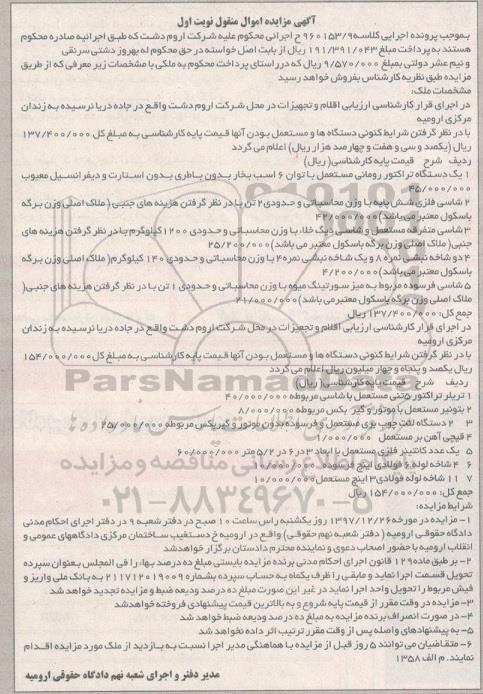 آگهی مزایده اموال منقول نوبت اول
بموجب پرونده اجرایی کلاسه ۹۶۰۱۵۳/۹ ج اجرائی محکوم علیه شرکت اروم دشت که طبق اجرائیه صادره محکوم
هستند به پرداخت مبلغ ۱۹۱/۳۹۱/۰۴۳ ریال از بابت اصل خواسته در حق محکوم له بهروز دشتی سرنقی
و نیم عشر دولتی بمبلغ ۹/۵۷۰/۰۰۰ ریال که در راستای پرداخت محکوم به ملکی با مشخصات زیر معرفی که از طریق
مزایده طبق نظریه کارشناس بفروش خواهد رسید
مشخصات ملک:
در اجرای قرار کارشناسی ارزیابی اقلام و تجهیزات در محل شرکت اروم دشت واقع در جاده دریا نرسیده به زندان
مرکزی ارومیه
با در نظر گرفتن شرایط کنونی دستگاه ها و مستعمل بودن آنها قیمت پایه کارشناسی به مبلغ کل ۱۳۷/۴۰۰/۰۰۰
ریال (یکصد و سی و هفت و چهارصد هزار ریال) اعلام می گردد
ردیف شرح قیمت پایه کارشناسی (ریال)
۱ یک دستگاه تراکتور رومانی مستعمل با توان ۶ اسب بخار بدون باطری بدون استارت و دیفرانسیل معیوب
۴۵/۰۰۰/۰۰۰
۲ شاسی فلزی شش پایه با وزن محاسباتی و حدودی ۲ تن با در نظر گرفتن هزینه های جنبی (ملاک اصلی وزن برگه
باسکول معتبر می باشد) ۴۲/۰۰۰/۰۰۰
۳ شاسی متفرقه مستعمل و شاسی دیگ خلا، با وزن محاسباتی و حدودی ۱۲۰۰ کیلوگرم با در نظر گرفتن هزینه های
جنبی (ملاک اصلی وزن برگه باسکول معتبر می باشد) ۲۵/۲۰۰/۰۰۰
۴ دو شاخه نبشی نمره ۸ و یک شاخه نبشی نمره ۴ با وزن محاسباتی و حدودی ۱۴۰ کیلوگرم (ملاک اصلی وزن برگه
باسکول معتبر می باشد) ۴/۲۰۰/۰۰۰
۵ شاسی فرسوده مربوط به میز سورتینگ میوه با وزن محاسباتی و حدودی ۱ تن با در نظر گرفتن هزینه های جنبی (
ملاک اصلی وزن برگه باسکول معتبر می باشد) ۲۱/۰۰۰/۰۰۰
جمع کل: ۱۳۷/۴۰۰/۰۰۰ ریال
در اجرای قرار کارشناسی ارزیابی اقلام و تجهیزات در محل شرکت اروم دشت واقع در جاده دریا نرسیده به زندان
مرکزی ارومیه
با در نظر گرفتن شرایط کنونی دستگاه ها و مستعمل بودن آنها قیمت پایه کارشناسی به مبلغ کل ۱۵۴/۰۰۰/۰۰۰
ریال یکصد و پنجاه و چهار میلیون ریال اعلام می گردد
ردیف شرح قیمت پایه کارشناسی (ریال)
۱ تریلر تراکتور ۵ تنی مستعمل با شاسی مربوطه ۴۰/۰۰۰/۰۰۰
۲ بتونیر مستعمل با موتور و گیربکس مربوطه ۸/۰۰۰/۰۰۰
۳ ۲ دستگاه لفت چوب بری مستعمل و فرسوده بدون موتور و گیربکس مربوطه ۲۵/۰۰۰/۰۰۰
۴ قیچی آهن بر مستعمل ۱/۰۰۰/۰۰۰
۵ یک عدد کانتینر فلزی مستعمل با ابعاد ۳ در ۶ در ۲/۵ متر ۶۰/۰۰۰/۰۰۰
۶ ۴ شاخه لوله ۶ فولادی اینچ فرسوده ۱۰/۰۰۰/۰۰۰
۷ ۱۱ شاخه لوله فولادی ۳ اینچ مستعمل ۱۰/۰۰۰/۰۰۰
جمع کل: ۱۵۴/۰۰۰/۰۰۰ ریال
شرایط مزایده:
۱- مزایده در مورخه ۱۳۹۷/۱۲/۲۶ روز یکشنبه راس ساعت ۱۰ صبح در دفتر شعبه ۹ در دفتر اجرای احکام مدنی
دادگاه حقوقی ارومیه (دفتر شعبه نهم حقوقی) واقع در ارومیه خ دستغیب ساختمان مرکزی دادگاههای عمومی و
انقلاب ارومیه با حضور اصحاب دعوی و نماینده محترم دادستان برگزار خواهد شد
۲- بر طبق ماده ۱۲۹ قانون اجرای احکام مدنی برنده مزایده بایستی مبلغ ده درصد بها، را فی المجلس بعنوان سپرده
تحویل قسمت اجرا نماید و مابقی را ظرف یکماه به حساب سپرده بشماره ۲۱۷۱۲۰۱۹۰۰۹ به بانک ملی واریز و
فیش مربوط را تحویل واحد اجرا نماید در غیر این صورت مبلغ ده درصد ودیعه ضبط و مزایده تجدید خواهد شد
۳- مزایده در وقت مقرر از قیمت پایه شروع و به بالاترین قیمت پیشنهادی فروخته خواهد شد
۴- در صورت انصراف برنده مزایده به مبلغ ده درصد ودیعه ضبط خواهد شد
۵- به پیشنهادهای واصله پس از وقت مقرر ترتیب اثر داده نخواهد شد
۶- متقاضیان می توانند ۵ روز قبل از مزایده با هماهنگی مدیر اجرا نسبت به بازدید از ملک مورد مزایده اقدام
نمایند. م الف ۱۳۵۸
مدیر دفتر و اجرای شعبه نهم دادگاه حقوقی ارومیه
ParsNamadData
۰۲۱-۸۸۳۴۹۶۷۰-۵